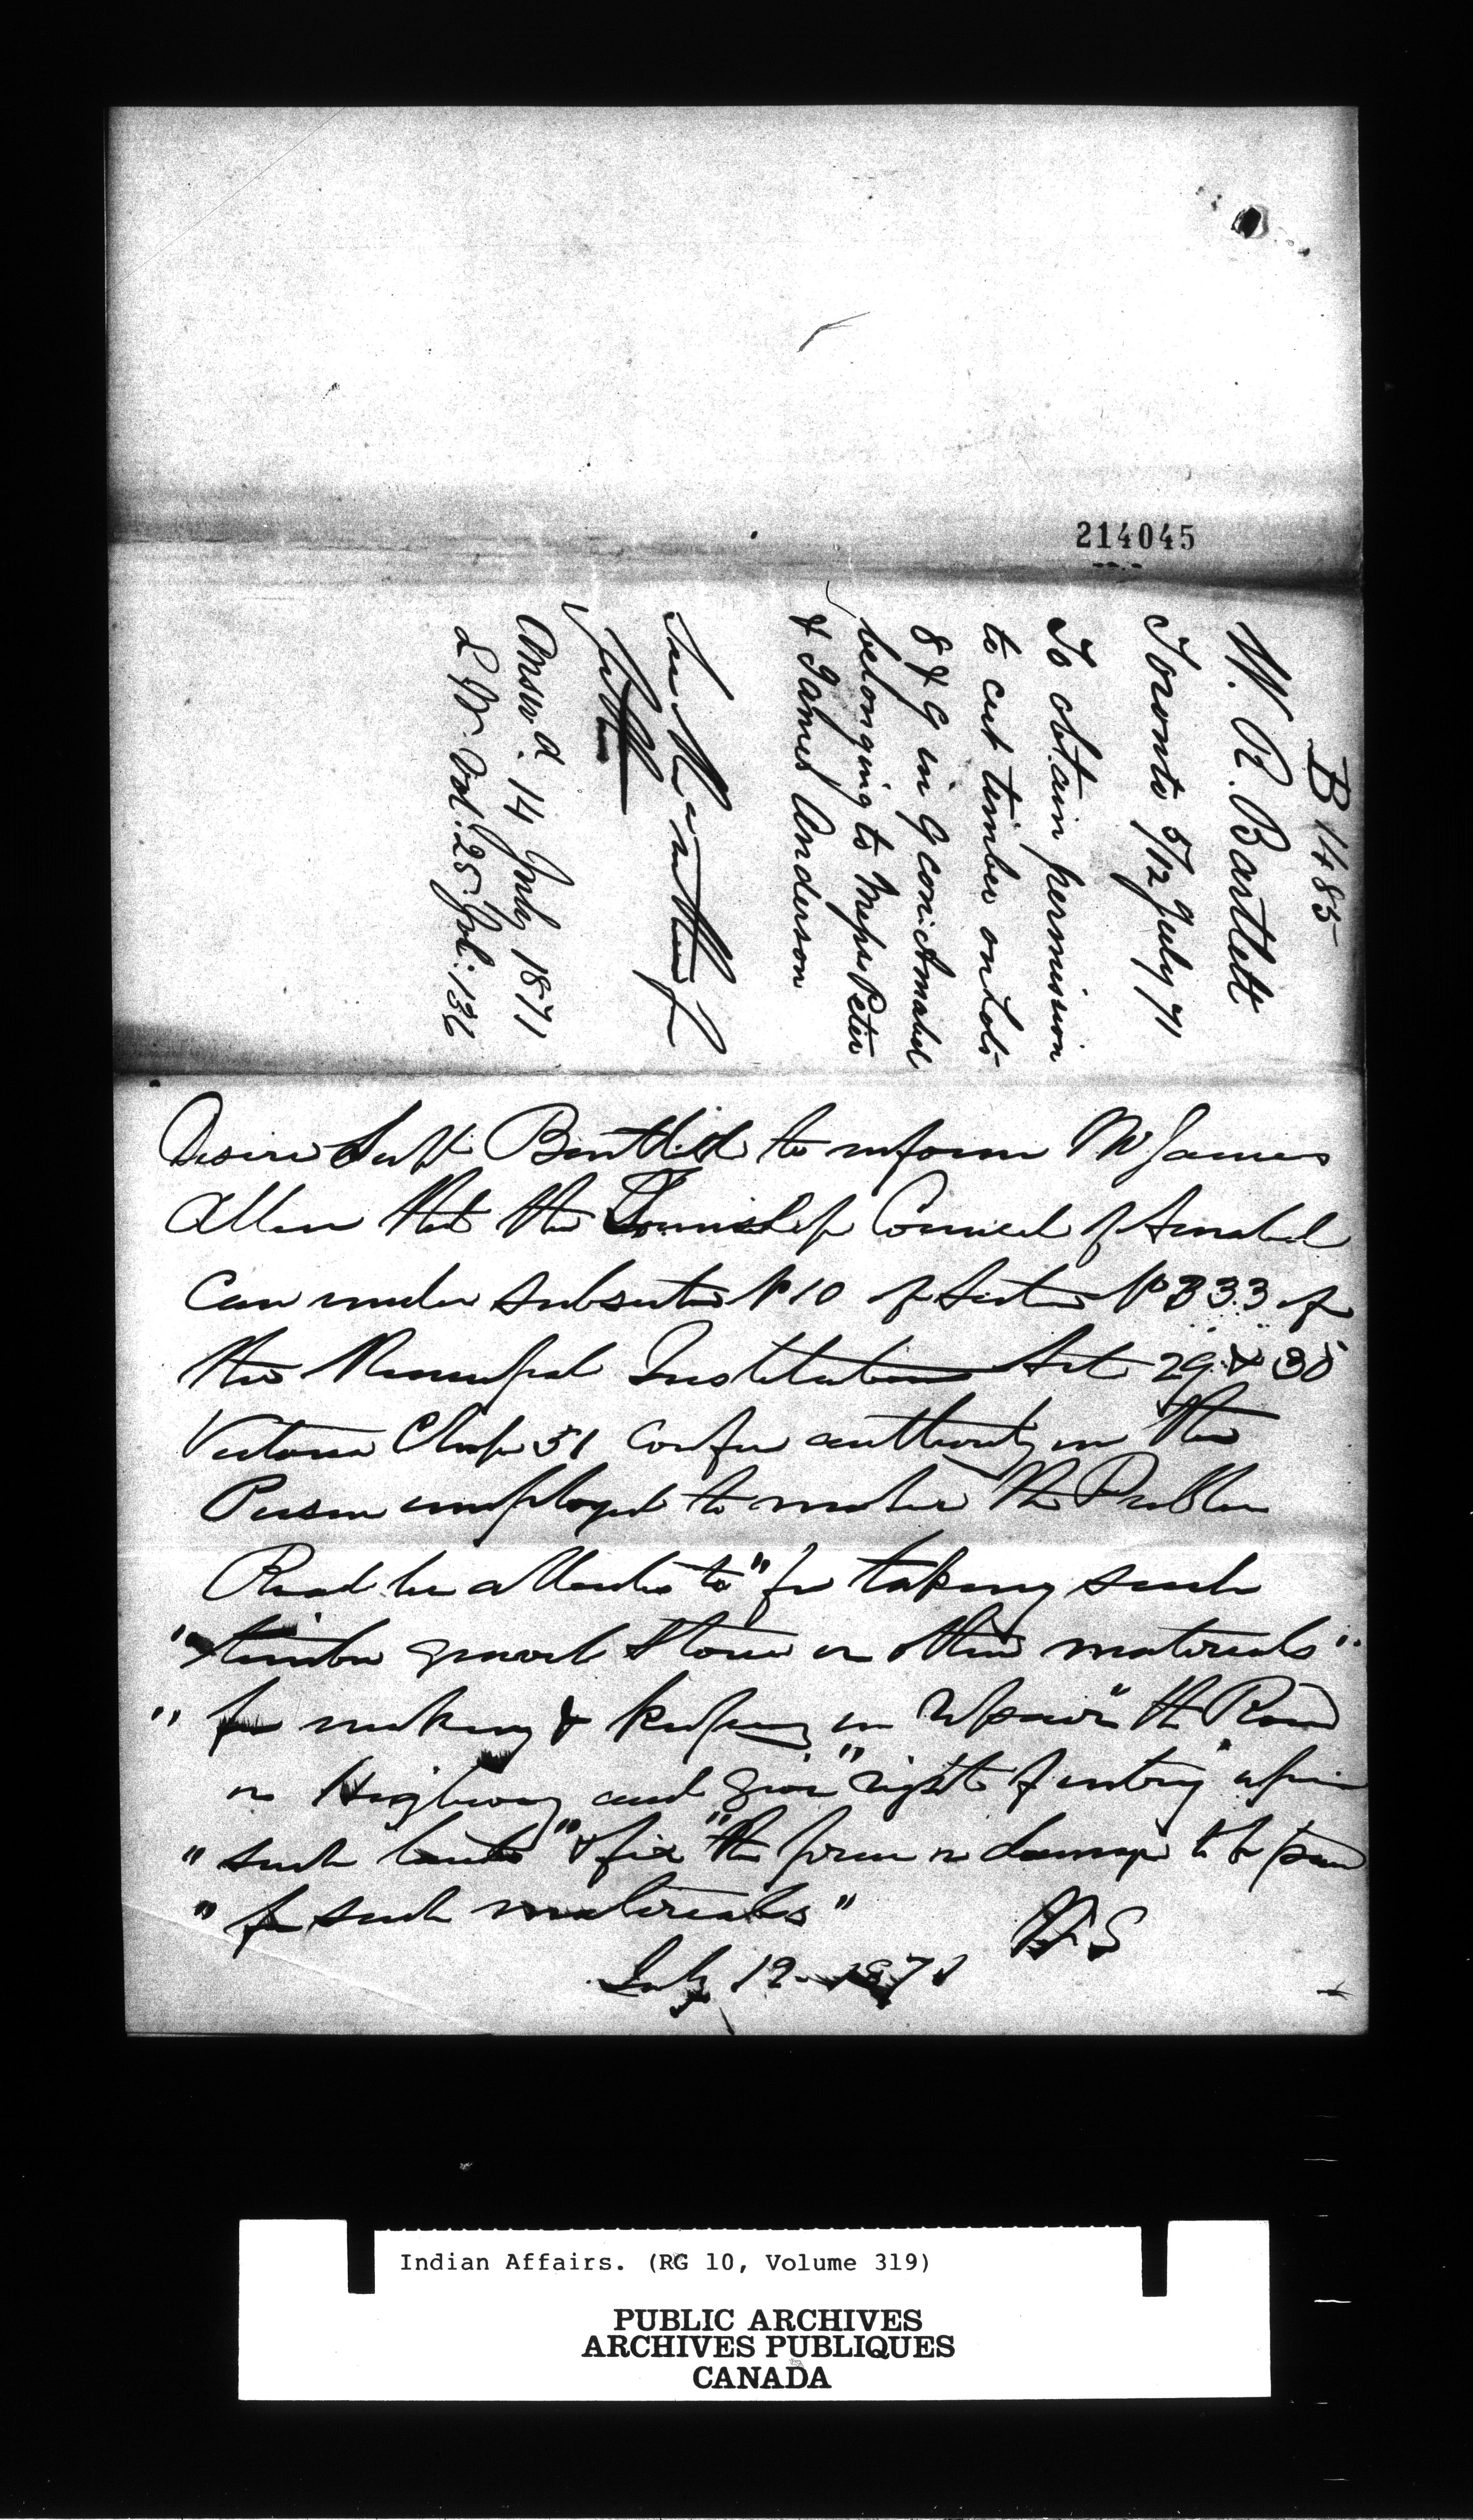 214045
B 1485
W. R. Bartlett
Toronto 5/12 July 71
To obtain permission
to cut timber on Lots
8 & 9 in 9 con: Amabel
belonging to Messrs Peter
& James Anderson
See the
within
Answd. 14 July 1871
L Br. Vol. 25. Fol: 136
Desire Supt Bartlett to inform Mr James
Allen that the Township Council of Amabel
Can under subsection No 10 of Section No 333 of
the Municipal Institutions Act 29 & 30
Victoria Chap 51 confer authority on the
Person employed to make the Public
Road he alludes to "for taking such
"timber gravel stone or other materials"
"for making & keeping in repair" the Road
or Highway and give "right of entry upon
"such lands" & fix "the price or damage to be paid
"for such materials"
July 12 1871